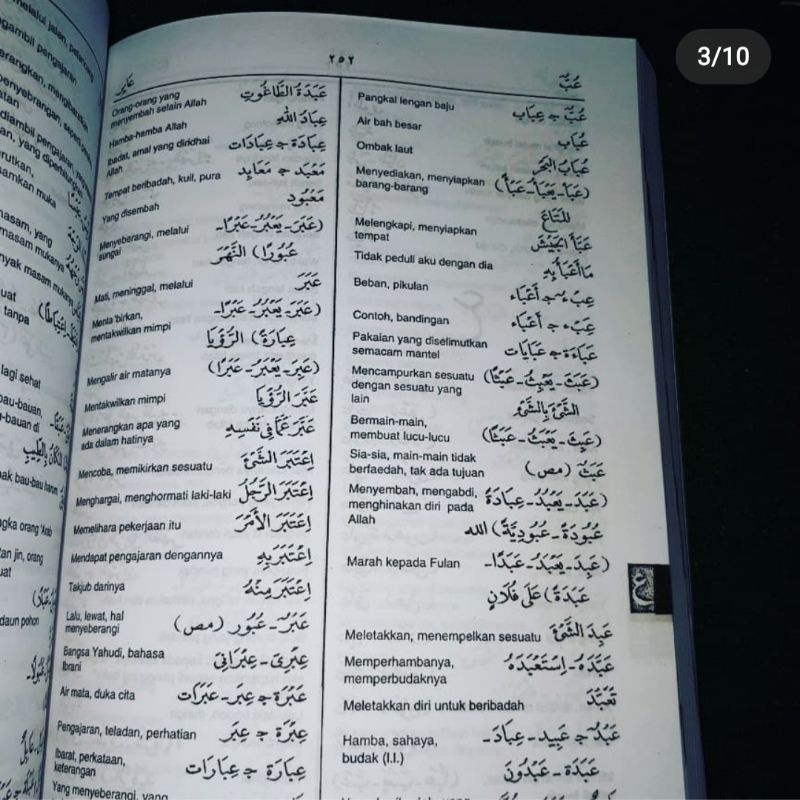 3/10
٢٥٢
عُبٌّ
عَابِرٌ
عُبٌّ ج عِبَاب
Pangkal lengan baju
عُبَاب
Air bah besar
عُبَابُ الْبَحْرِ
Ombak laut
(عَبَأَ - يَعْبَأُ - عَبْأً)
لِلْمَتَاعِ
Menyediakan, menyiapkan
barang-barang
عَبَأَ الْجَيْشَ
Melengkapi, menyiapkan
tempat
مَا أَعْبَأُ بِهِ
Tidak peduli aku dengan dia
عِبْءٌ ج أَعْبَاء
Beban, pikulan
عِبْءٌ ج أَعْبَاء
Contoh, bandingan
عَبَاءَة ج عَبَايَات
Pakaian yang diselimutkan
semacam mantel
(عَبَثَ - يَعْبِثُ - عَبْثًا)
الشَّيْءَ بِالشَّيْءِ
Mencampurkan sesuatu
dengan sesuatu yang
lain
(عَبِثَ - يَعْبَثُ - عَبَثًا)
Bermain-main,
membuat lucu-lucu
عَبَثٌ (مص)
Sia-sia, main-main tidak
berfaedah, tak ada tujuan
(عَبَدَ - يَعْبُدُ - عِبَادَةً
عُبُودَةً - عُبُودِيَّةً) الله
Menyembah, mengabdi,
menghinakan diri pada
Allah
(عَبِدَ - يَعْبَدُ - عَبَدًا -
عَبَدَةً) عَلَى فُلَانٍ
Marah kepada Fulan
عَبِدَ الشَّيْءَ
Meletakkan, menempelkan sesuatu
عَبَّدَهُ - اِسْتَعْبَدَهُ
Memperhambanya,
memperbudaknya
تَعَبَّدَ
Meletakkan diri untuk beribadah
عَبْدٌ ج عَبِيد - عِبَاد -
عَبَدَة - عَبْدُونَ
Hamba, sahaya,
budak (l.l.)
ع
عَبَدَةُ الطَّاغُوتِ
Orang-orang yang
menyembah selain Allah
عِبَادُ اللهِ
Hamba-hamba Allah
عِبَادَة ج عِبَادَات
Ibadat, amal yang diridhai
Allah
مَعْبَد ج مَعَابِد
Tempat beribadah, kuil, pura
مَعْبُود
Yang disembah
(عَبَرَ - يَعْبُرُ - عَبْرًا -
عُبُورًا) النَّهْرَ
Menyeberangi, melalui
sungai
عَبَرَ
Mati, meninggal, melalui
(عَبَرَ - يَعْبُرُ - عَبْرًا -
عِبَارَةً) الرُّؤْيَا
Menta'birkan,
mentakwilkan mimpi
(عَبِرَ - يَعْبَرُ - عَبَرًا)
Mengalir air matanya
عَبَّرَ الرُّؤْيَا
Mentakwilkan mimpi
عَبَّرَ عَمَّا فِي نَفْسِهِ
Menerangkan apa yang
ada dalam hatinya
اِعْتَبَرَ الشَّيْءَ
Mencoba, memikirkan sesuatu
اِعْتَبَرَ الرَّجُلَ
Menghargai, menghormati laki-laki
اِعْتَبَرَ الْأَمْرَ
Memelihara pekerjaan itu
اِعْتَبَرَ بِهِ
Mendapat pengajaran dengannya
اِعْتَبَرَ مِنْهُ
Takjub darinya
عَبْرٌ - عُبُور (مص)
Lalu, lewat, hal
menyeberangi
عِبْرِيّ - عِبْرَانِيّ
Bangsa Yahudi, bahasa
Ibrani
عَبْرَة ج عِبَر - عَبَرَات
Air mata, duka cita
عِبْرَة ج عِبَر
Pengajaran, teladan, perhatian
عِبَارَة ج عِبَارَات
Ibarat, perkataan,
keterangan
Yang menyeberangi, yang